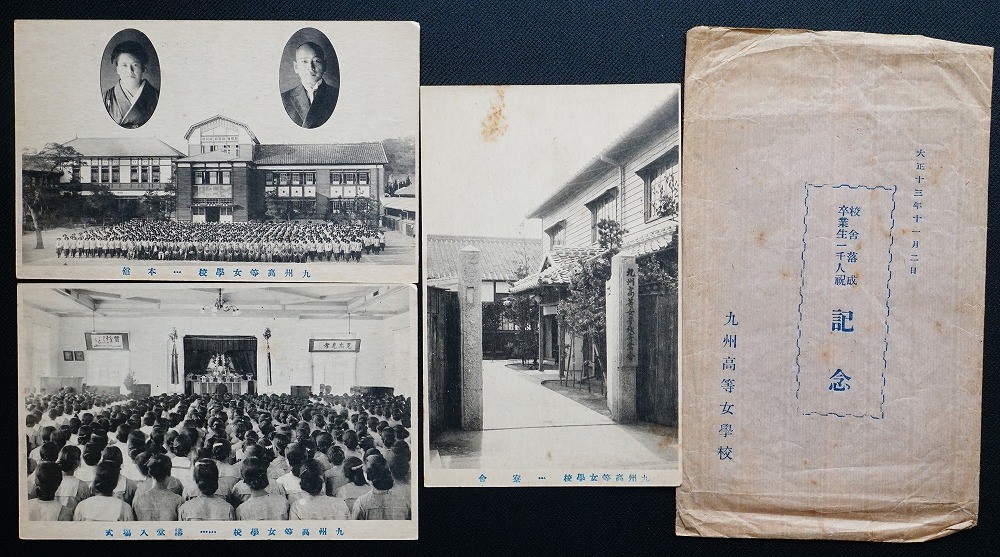 九州高等女學校 … 本館
九州高等女學校 …… 講堂入場式
九州高等女學校 … 寮舍
大正十三年十一月二日
校舍落成
卒業生一千人祝
記念
九州高等女學校